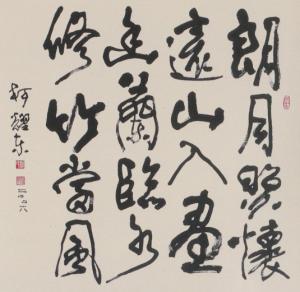 朗月照懷
遠山入畫
幽蘭臨水
修竹當風
柯耀東
二〇〇六